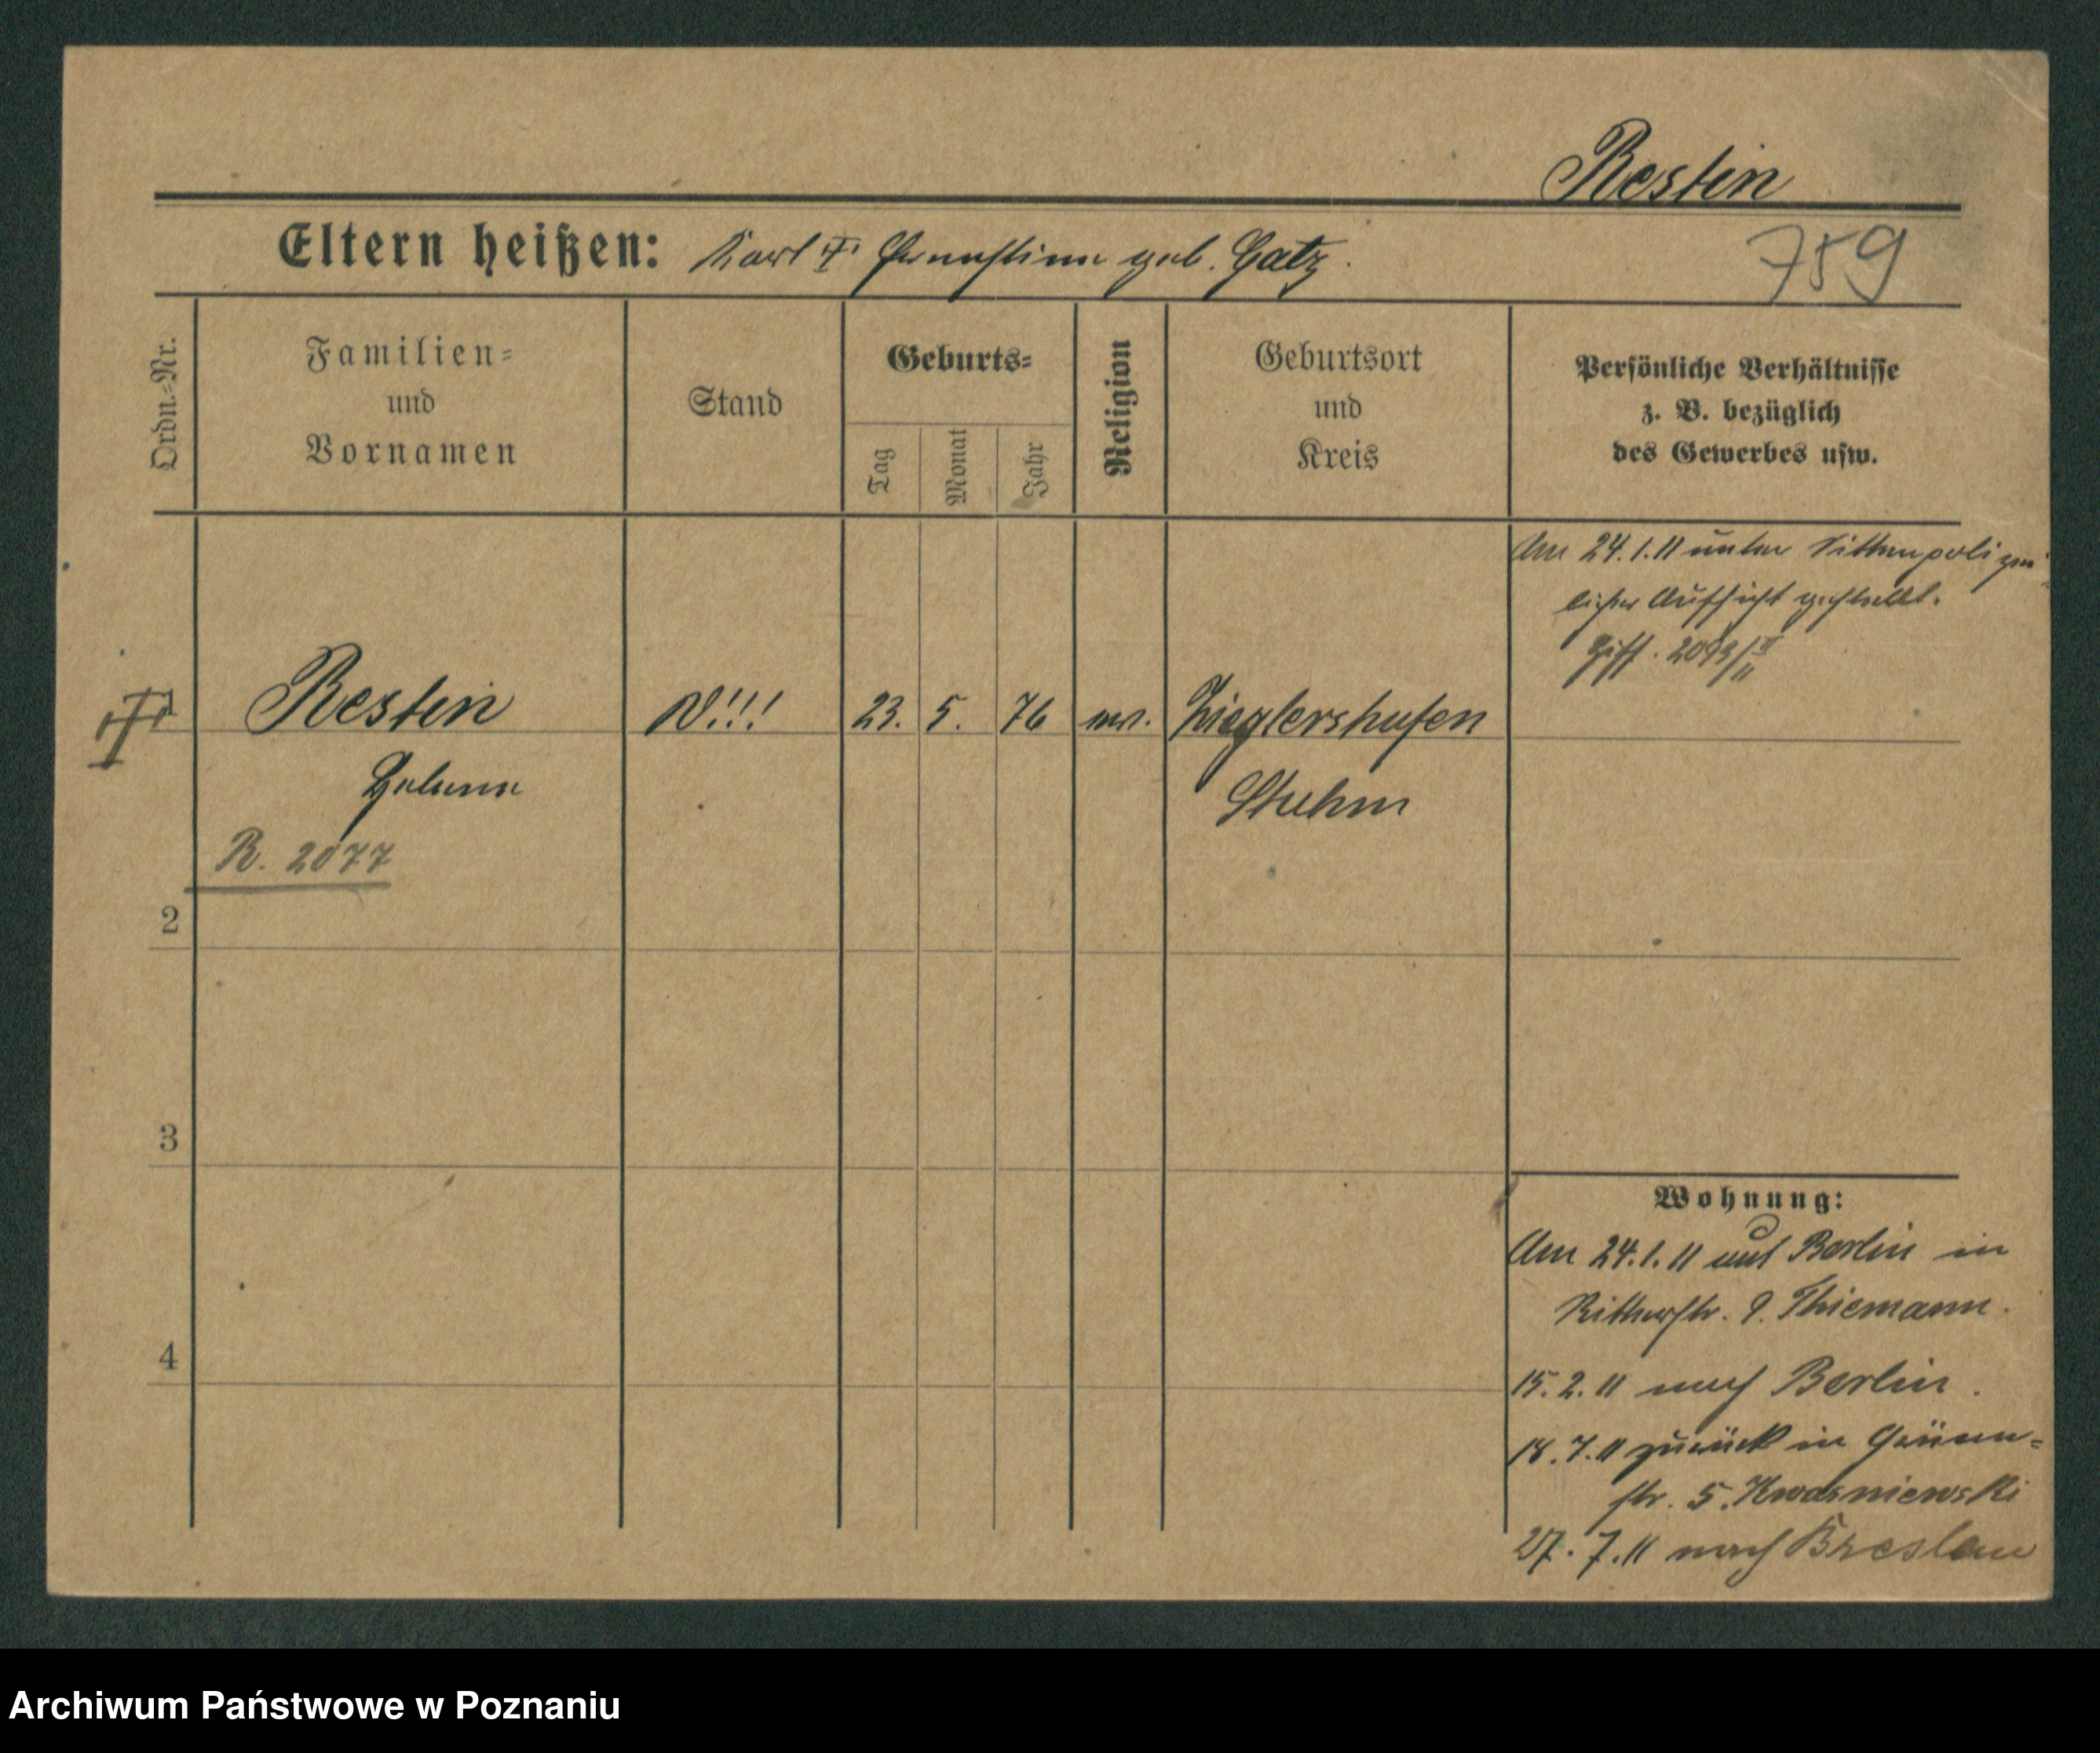 Restin
Eltern heißen: Karl † Ernestine geb. Gatz.
759
Ordn.-Nr.
Familien-
und
Vornamen
Stand
Geburts-
Tag
Monat
Jahr
Religion
Geburtsort
und
Kreis
Persönliche Verhältnisse
z. B. bezüglich
des Gewerbes usw.
Am 24.1.11 unter Sittenpolizei-
licher Aufsicht gestellt.
1 Restin 23. 5. 76 Zieglershufen
Helene Stuhm
R. 2077
2
3
4
Wohnung:
Am 24.1.11 aus Berlin in
Ritterstr. 9. Thiemann.
15.2.11 nach Berlin.
18.7.11 zurück in Grünen-
str. 5. Kwasniewski
27.7.11 nach Breslau
Archiwum Państwowe w Poznaniu